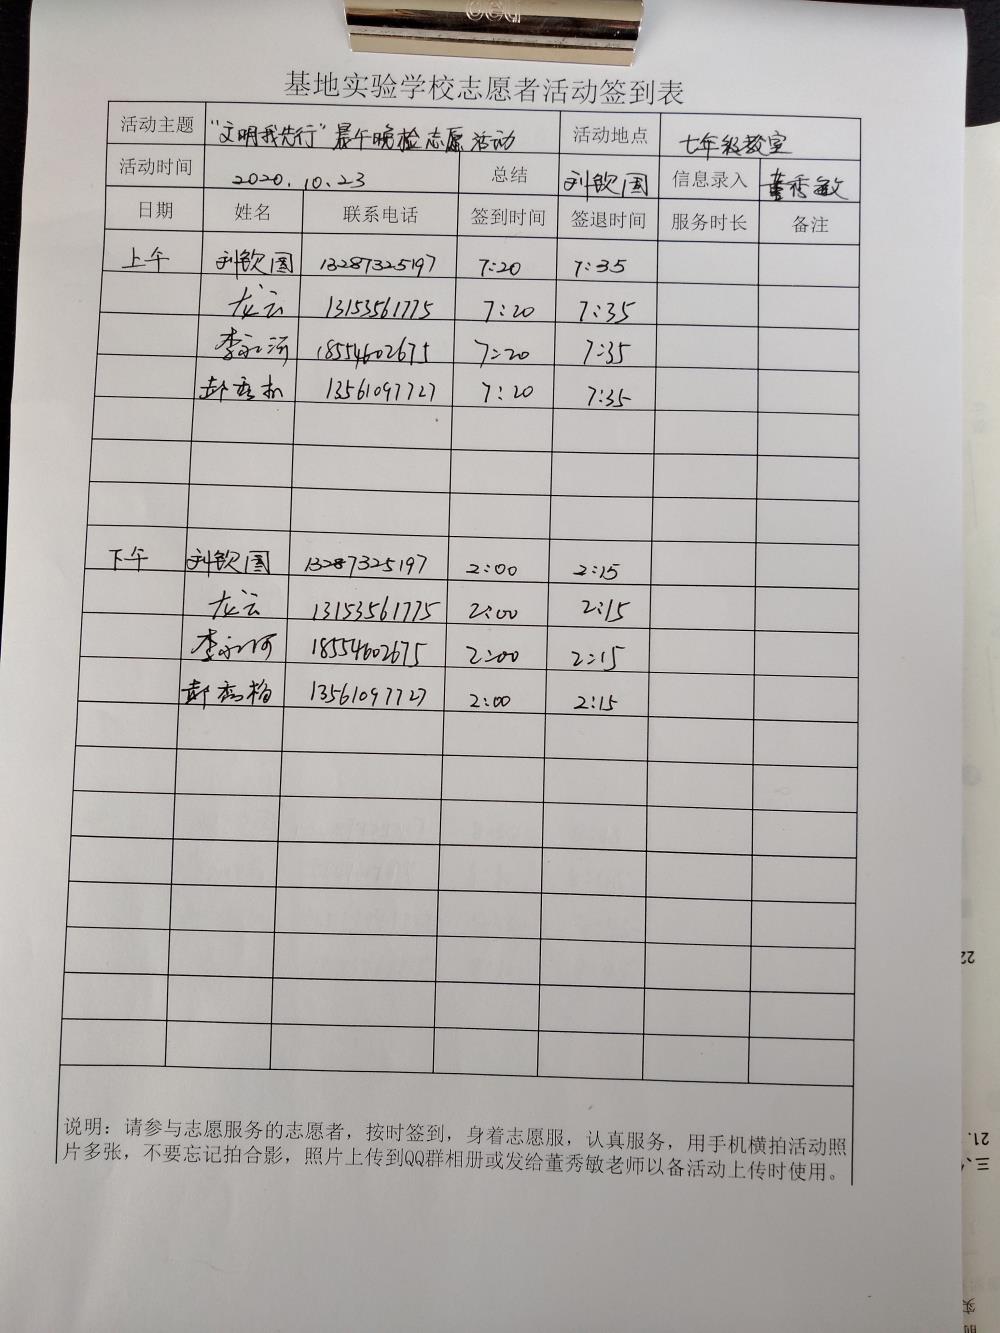 deli
基地实验学校志愿者活动签到表
活动主题 “文明我先行”晨午晚检志愿活动 活动地点 七年级教室
活动时间 2020.10.23 总结 刘钦国 信息录入 董秀敏
日期 姓名 联系电话 签到时间 签退时间 服务时长 备注
上午 刘钦国 13287325197 7:20 7:35
龙云 13153561775 7:20 7:35
李永河 18554602675 7:20 7:35
13561097727 7:20 7:35
下午 刘钦国 13287325197 2:00 2:15
龙云 13153561775 2:00 2:15
李永河 18554602675 2:00 2:15
13561097727 2:00 2:15
说明：请参与志愿服务的志愿者，按时签到，身着志愿服，认真服务，用手机横拍活动照
片多张，不要忘记拍合影，照片上传到QQ群相册或发给董秀敏老师以备活动上传时使用。
22
21.
三、
实
前